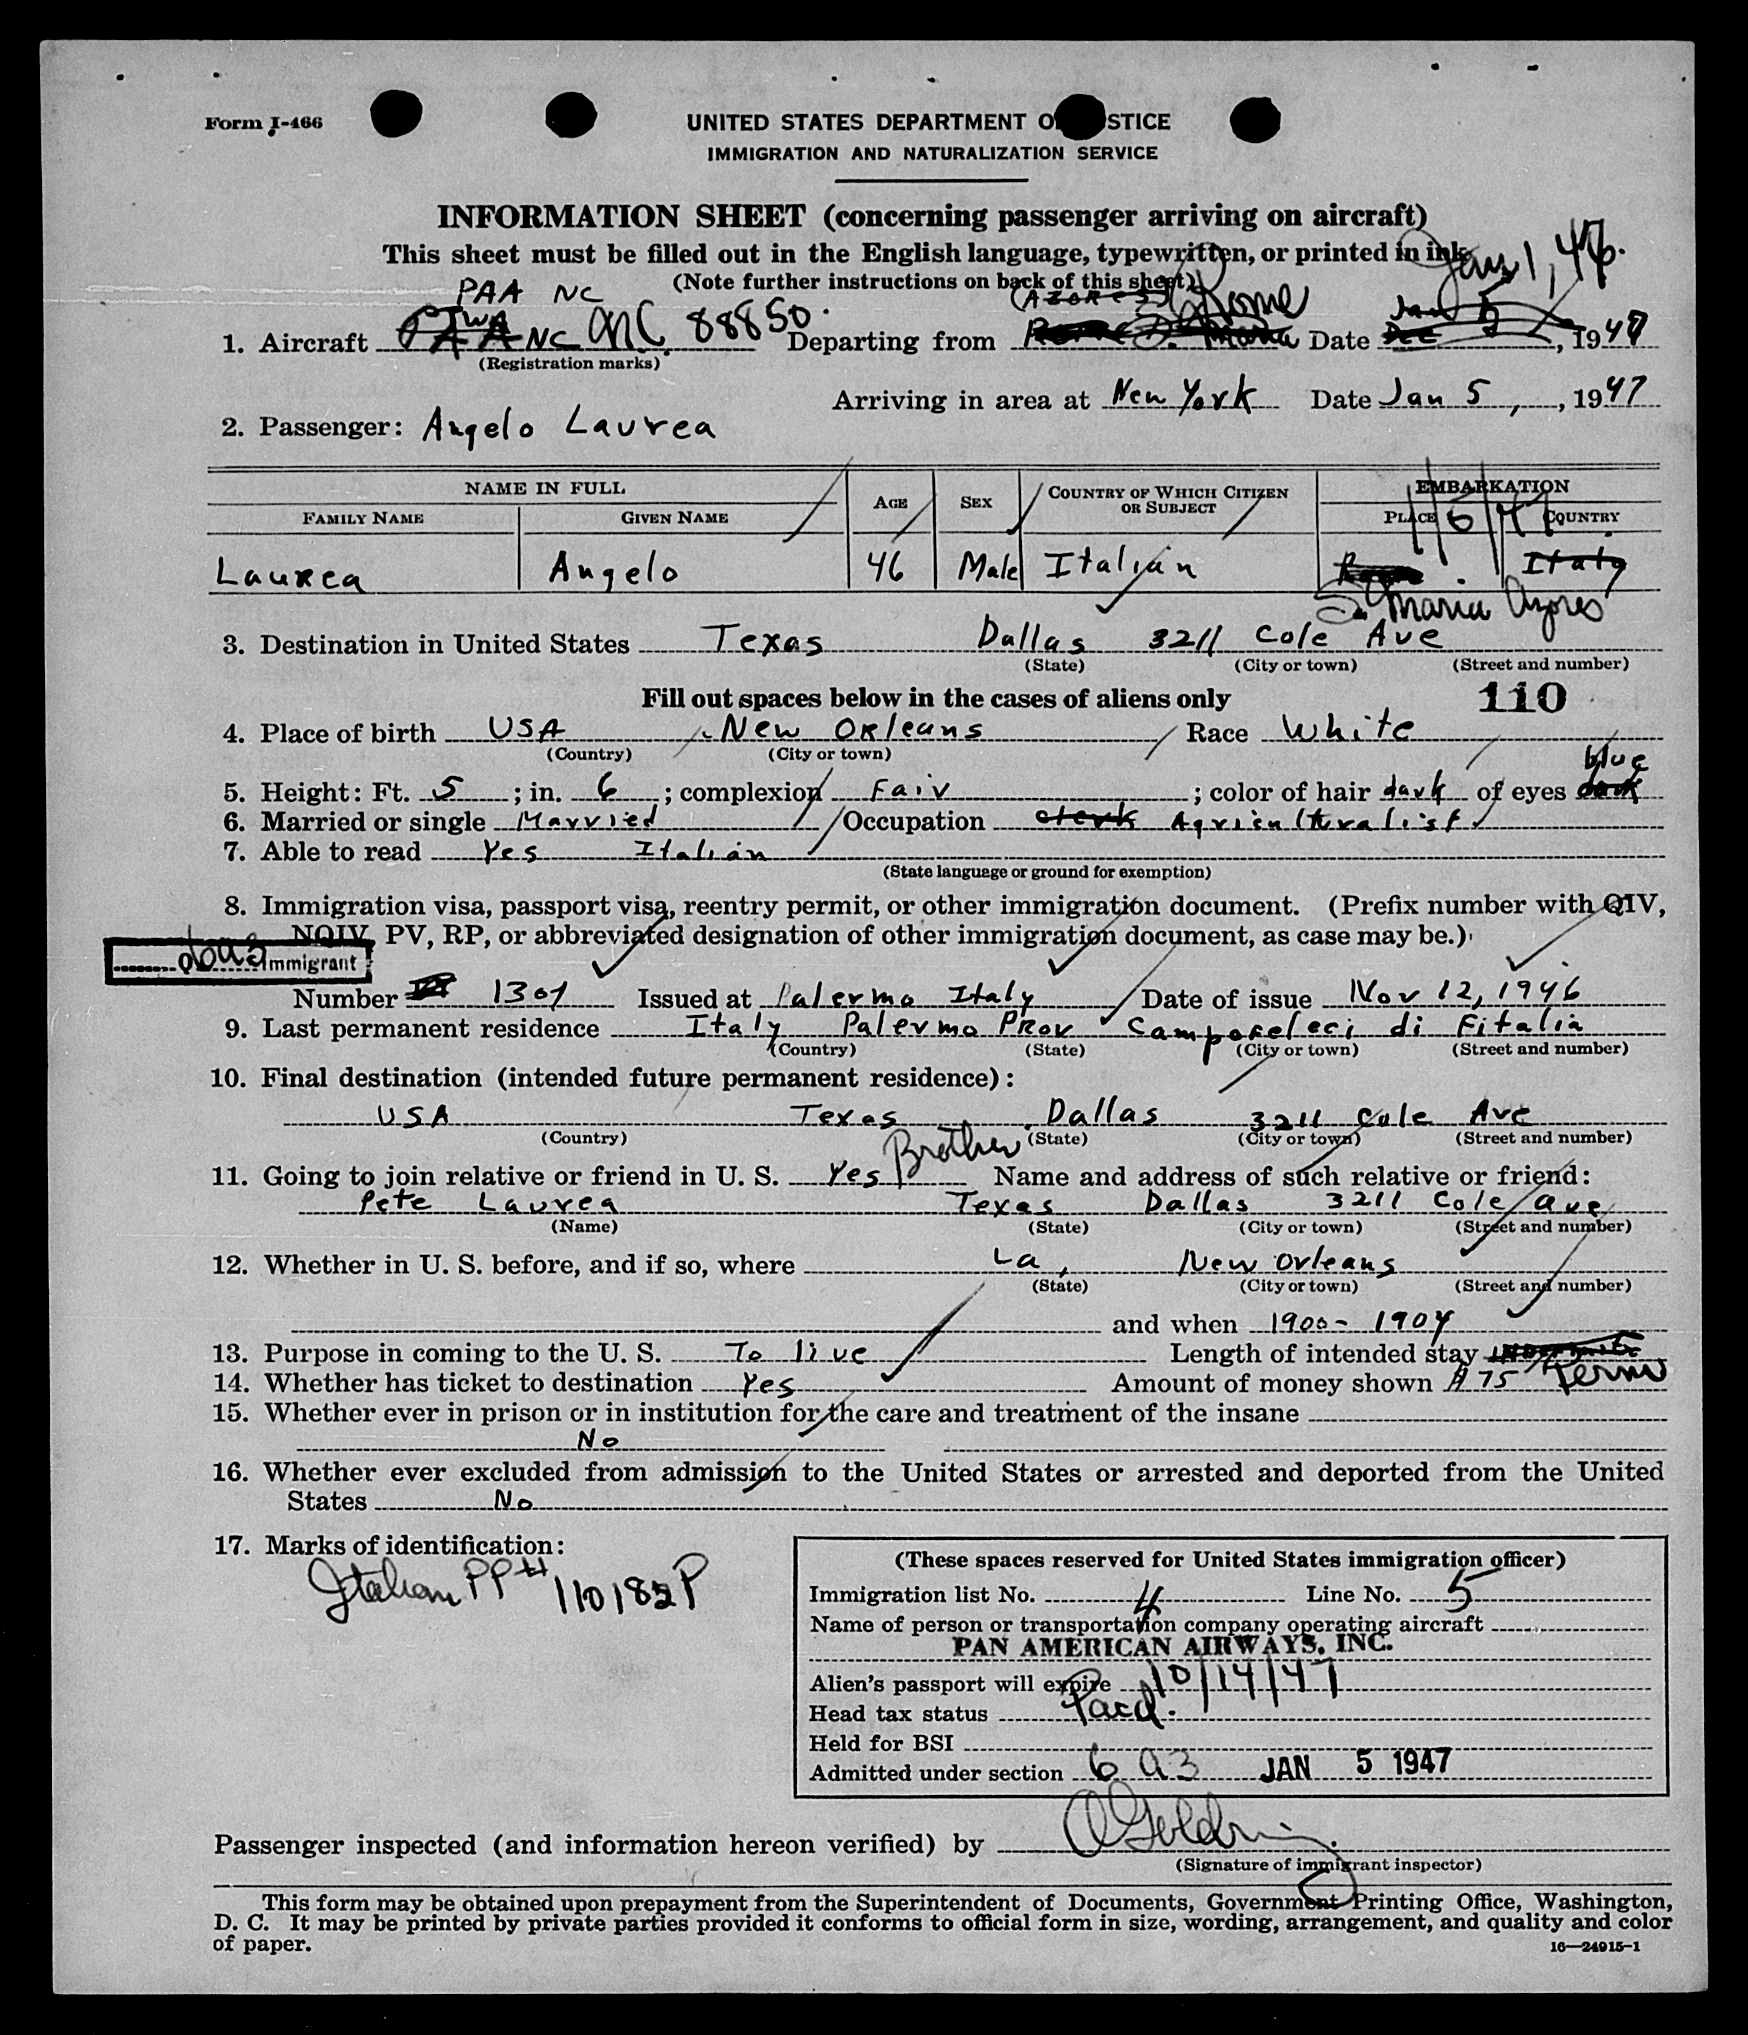 Form I-466
UNITED STATES DEPARTMENT O STICE
IMMIGRATION AND NATURALIZATION SERVICE
INFORMATION SHEET (concerning passenger arriving on aircraft)
This sheet must be filled out in the English language, typewritten, or printed in ink.
(Note further instructions on back of this sheet)
Jan 1, 46.
PAA NC
(AZORES) Rome
1. Aircraft TWA PAA NC NC. 88850. Departing from Maria Date Jan 5 Dec, 1947
(Registration marks)
Arriving in area at New York Date Jan 5, 1947
2. Passenger: Angelo Laurea
NAME IN FULL AGE SEX COUNTRY OF WHICH CITIZEN OR SUBJECT EMBARKATION
FAMILY NAME GIVEN NAME PLACE COUNTRY
Laurea Angelo 46 Male Italian Italy
Maria Azores
3. Destination in United States Texas Dallas 3211 Cole Ave
(State) (City or town) (Street and number)
Fill out spaces below in the cases of aliens only 110
4. Place of birth USA New Orleans Race White
(Country) (City or town)
blue
5. Height: Ft. 5; in. 6; complexion Fair; color of hair dark of eyes dark
6. Married or single Married Occupation clerk Agriculturalist
7. Able to read Yes Italian
(State language or ground for exemption)
8. Immigration visa, passport visa, reentry permit, or other immigration document. (Prefix number with QIV,
NQIV, PV, RP, or abbreviated designation of other immigration document, as case may be.)
Immigrant
Number 1301 Issued at Palermo Italy Date of issue Nov 12, 1946
9. Last permanent residence Italy Palermo Prov di Fitalia
(Country) (State) (City or town) (Street and number)
10. Final destination (intended future permanent residence):
USA Texas Dallas 3211 Cole Ave
(Country) (State) (City or town) (Street and number)
Brother
11. Going to join relative or friend in U. S. Yes Name and address of such relative or friend:
Pete Laurea Texas Dallas 3211 Cole Ave
(Name) (State) (City or town) (Street and number)
12. Whether in U. S. before, and if so, where La, New Orleans
(State) (City or town) (Street and number)
and when 1900-1904
13. Purpose in coming to the U. S. To live Length of intended stay
14. Whether has ticket to destination Yes Amount of money shown $75 Perm
15. Whether ever in prison or in institution for the care and treatment of the insane
No
16. Whether ever excluded from admission to the United States or arrested and deported from the United
States No
17. Marks of identification:
Italian PP # 110182P
(These spaces reserved for United States immigration officer)
Immigration list No. 4 Line No. 5
Name of person or transportation company operating aircraft
PAN AMERICAN AIRWAYS, INC.
Alien's passport will expire 10/14/47
Head tax status Paid.
Held for BSI
Admitted under section 6 a3 JAN 5 1947
Passenger inspected (and information hereon verified) by
(Signature of immigrant inspector)
This form may be obtained upon prepayment from the Superintendent of Documents, Government Printing Office, Washington,
D. C. It may be printed by private parties provided it conforms to official form in size, wording, arrangement, and quality and color
of paper.
16—24915-1